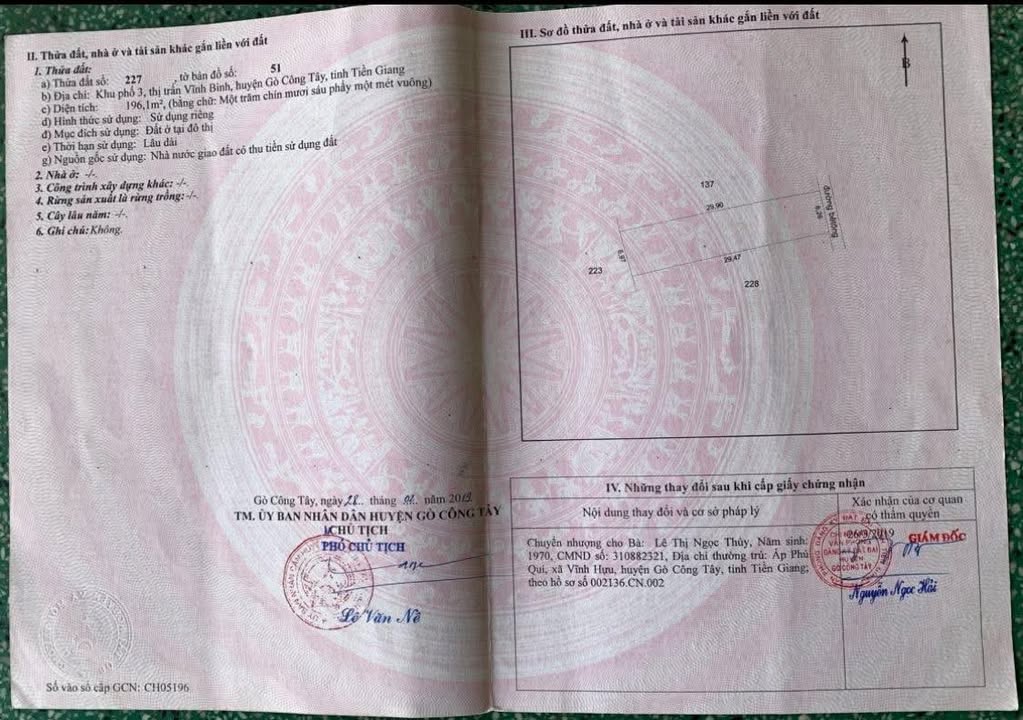 II. Thửa đất, nhà ở và tài sản khác gắn liền với đất
1. Thửa đất:
a) Thửa đất số: 227 , tờ bản đồ số: 51
b) Địa chỉ: Khu phố 3, thị trấn Vĩnh Bình, huyện Gò Công Tây, tỉnh Tiền Giang
c) Diện tích: 196,1m², (bằng chữ: Một trăm chín mươi sáu phẩy một mét vuông)
d) Hình thức sử dụng: Sử dụng riêng
đ) Mục đích sử dụng: Đất ở tại đô thị
e) Thời hạn sử dụng: Lâu dài
g) Nguồn gốc sử dụng: Nhà nước giao đất có thu tiền sử dụng đất
2. Nhà ở: -/-.
3. Công trình xây dựng khác: -/-.
4. Rừng sản xuất là rừng trồng: -/-.
5. Cây lâu năm: -/-.
6. Ghi chú: Không.
Gò Công Tây, ngày tháng năm 2019
TM. ỦY BAN NHÂN DÂN HUYỆN GÒ CÔNG TÂY
CHỦ TỊCH
PHÓ CHỦ TỊCH
Lê Văn Nê
Số vào sổ cấp GCN: CH05196
III. Sơ đồ thửa đất, nhà ở và tài sản khác gắn liền với đất
B
137
29.90
6.26
đường bêtông
6.97
223
29.47
228
IV. Những thay đổi sau khi cấp giấy chứng nhận
Nội dung thay đổi và cơ sở pháp lý
Xác nhận của cơ quan
có thẩm quyền
Chuyển nhượng cho Bà: Lê Thị Ngọc Thúy, Năm sinh:
1970, CMND số: 310882321, Địa chỉ thường trú: Ấp Phú
Quí, xã Vĩnh Hựu, huyện Gò Công Tây, tỉnh Tiền Giang;
theo hồ sơ số 002136.CN.002
GIÁM ĐỐC
CHI NHÁNH
VĂN PHÒNG
ĐĂNG KÝ ĐẤT ĐAI
HUYỆN
GÒ CÔNG TÂY
Nguyễn Ngọc Hải